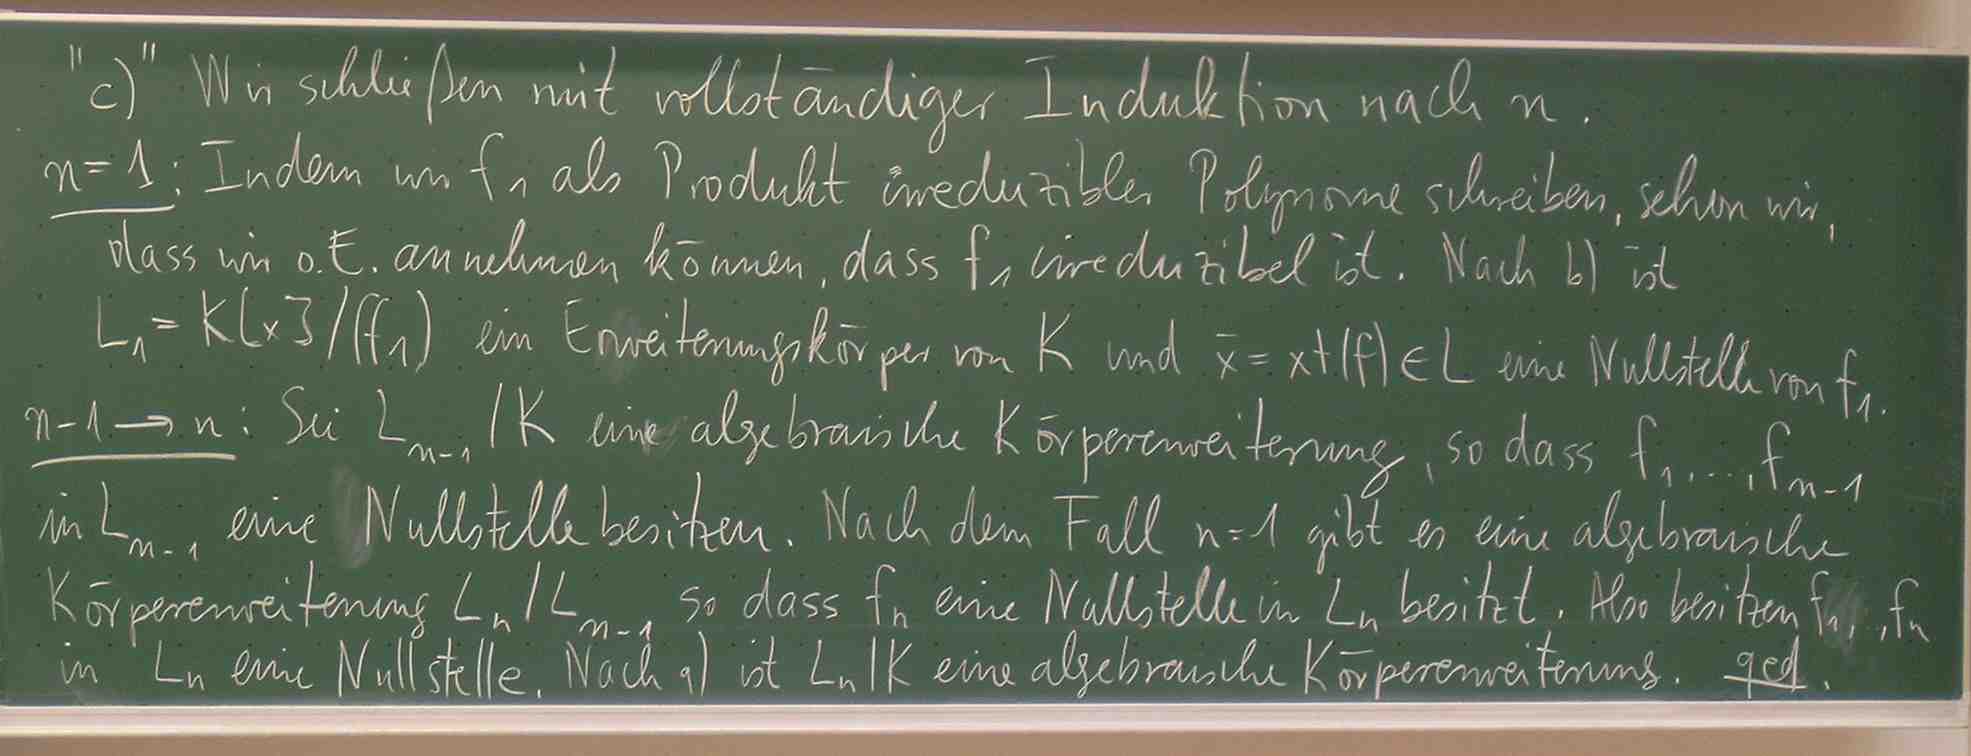 "c)" Wir schließen mit vollständiger Induktion nach n.
n=1: Indem wir f₁ als Produkt irreduzibler Polynome schreiben, sehen wir,
dass wir o.E. annehmen können, dass f₁ irreduzibel ist. Nach b) ist
L₁ = K[x]/(f₁) ein Erweiterungskörper von K und x̄ = x+(f) ∈ L eine Nullstelle von f₁.
n-1 → n: Sei Lₙ₋₁/K eine algebraische Körpererweiterung, so dass f₁,...,fₙ₋₁
in Lₙ₋₁ eine Nullstelle besitzen. Nach dem Fall n=1 gibt es eine algebraische
Körpererweiterung Lₙ/Lₙ₋₁ so dass fₙ eine Nullstelle in Lₙ besitzt. Also besitzen f₁, ,fₙ
in Lₙ eine Nullstelle. Nach a) ist Lₙ/K eine algebraische Körpererweiterung. qed.